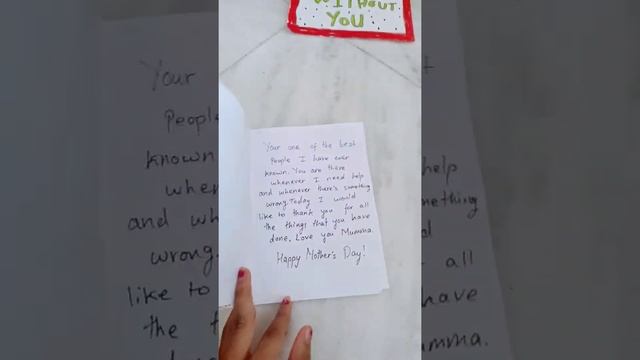 WITHOUT
YOU
Your one of the best
People I have ever
known. You are there
whenever I need help
and whenever there's something
wrong. Today I would
like to thank you for all
the things that you have
done. Love you Mumma.
Happy Mother's Day!